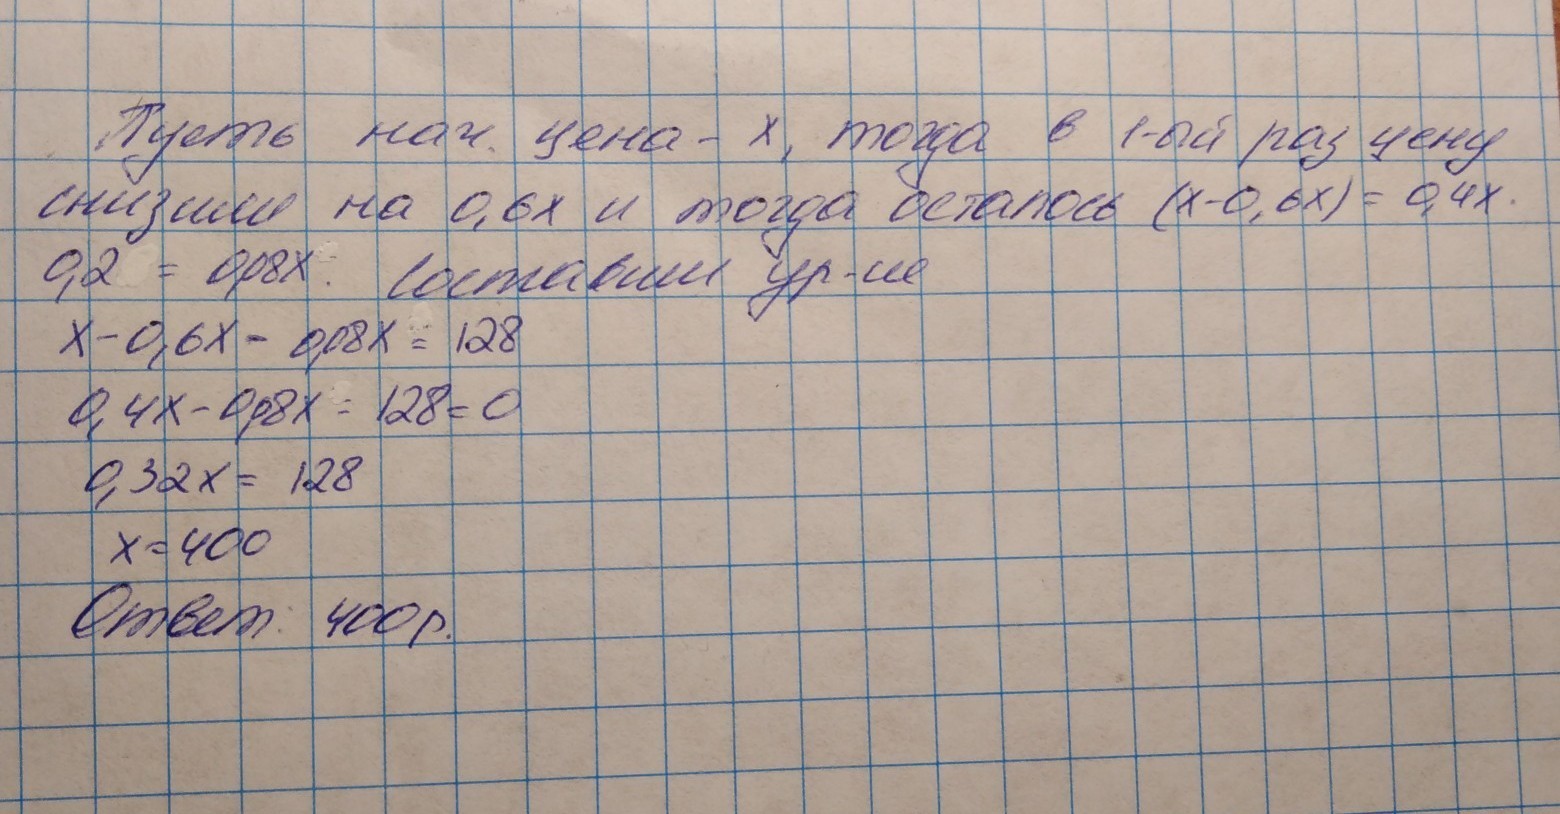 Пусть нач. цена - x, тогда в 1-ый раз цену
снизили на 0,6x и тогда осталось (x-0,6x) = 0,4x.
0,2 = 0,08x. Составим ур-ие
x-0,6x - 0,08x = 128
0,4x-0,08x - 128=0
0,32x= 128
x=400
Ответ: 400р.